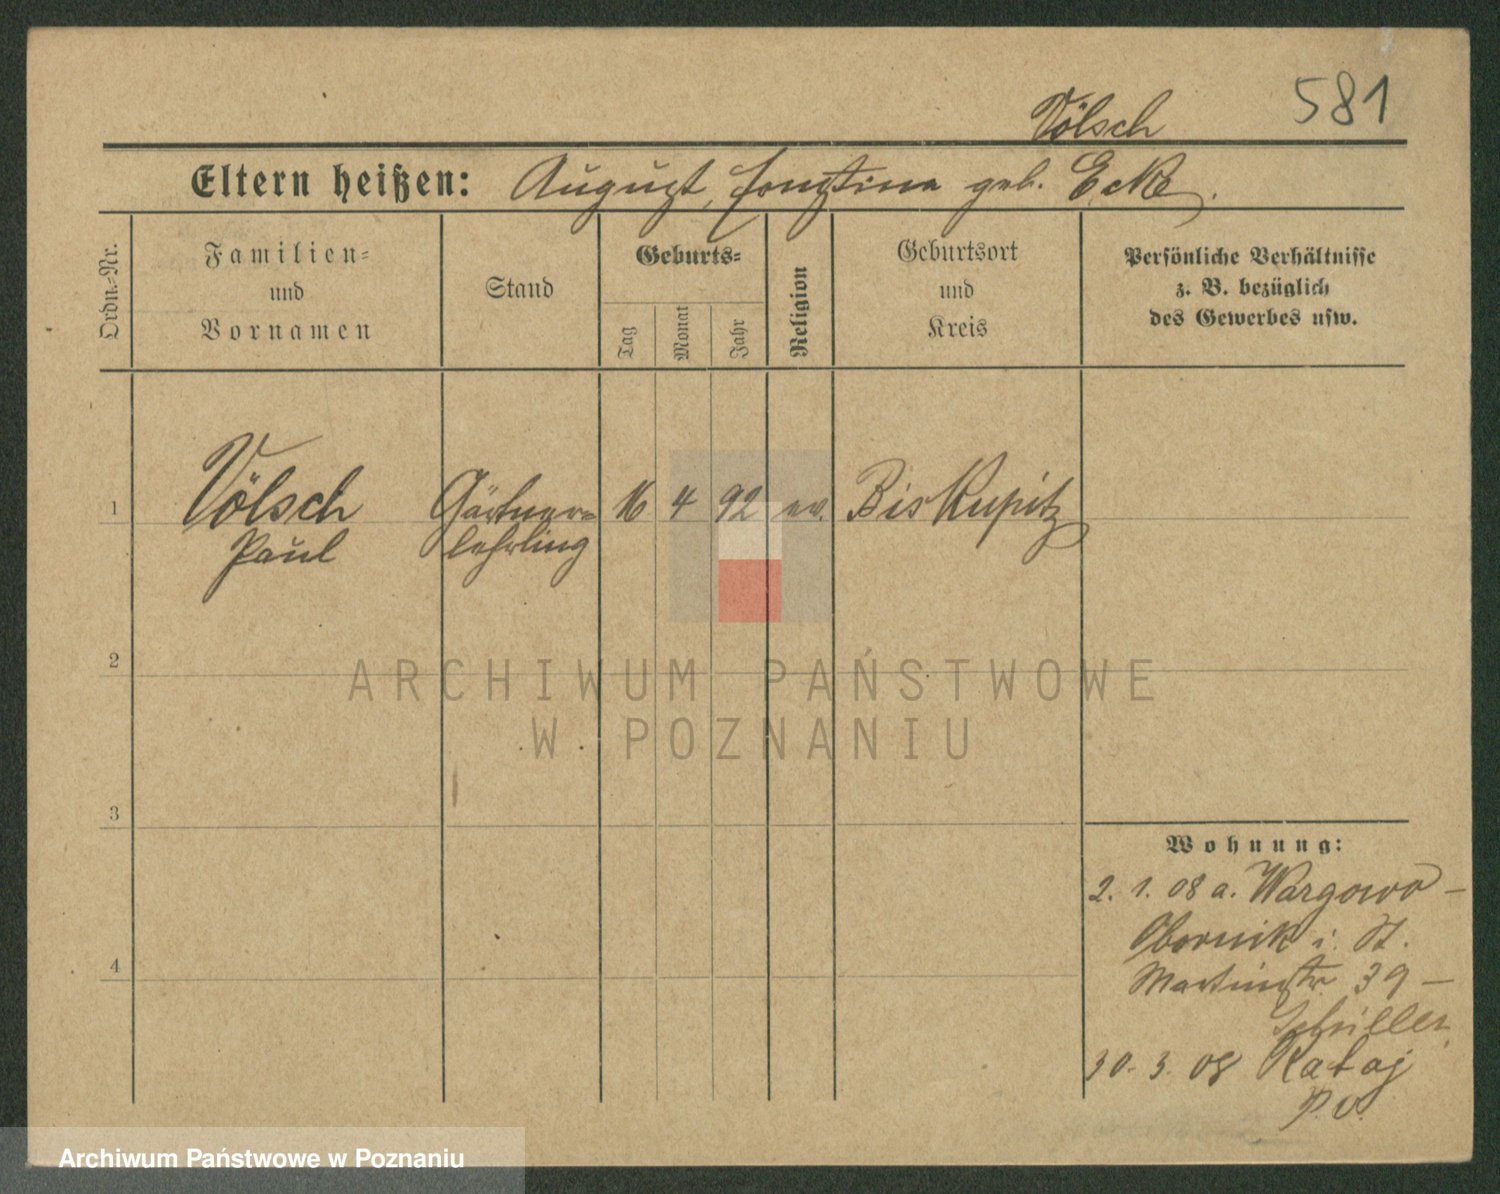 581
Völsch
Eltern heißen: August, Ernstina geb. Ecke.
Ordn.-Nr.
Familien-
und
Vornamen
Stand
Geburts-
Tag
Monat
Jahr
Religion
Geburtsort
und
Kreis
Persönliche Verhältnisse
z. B. bezüglich
des Gewerbes usw.
1
Völsch
Paul
Gärtner-
lehrling
16
4
92
ev.
Biskupitz
2
ARCHIWUM PAŃSTWOWE
W POZNANIU
3
4
Wohnung:
2. 1. 08 a. Wargowo -
Obornik i. St.
Martinstr. 39 -
Schiller
30. 3. 08 Rataj
P. v.
Archiwum Państwowe w Poznaniu